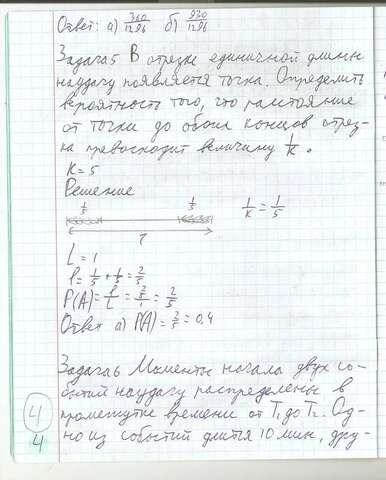 Ответ: а) 360/1296 б) 930/1296
Задача 5 В отрезке единичной длины
наудачу появляется точка. Определить
вероятность того, что расстояние
от точки до обоих концов отрез-
ка превосходит величину 1/k.
K=5
Решение
1/5 1/5 1/k = 1/5
1
L = 1
l = 1/5 + 1/5 = 2/5
P(A) = l/L = 2/5/1 = 2/5
Ответ а) P(A) = 2/5 = 0,4
Задача 6 Моменты начала двух со-
бытий наудачу распределены в
промежутке времени от T₁ до T₂. Од-
но из событий длится 10 мин, дру-
4
4